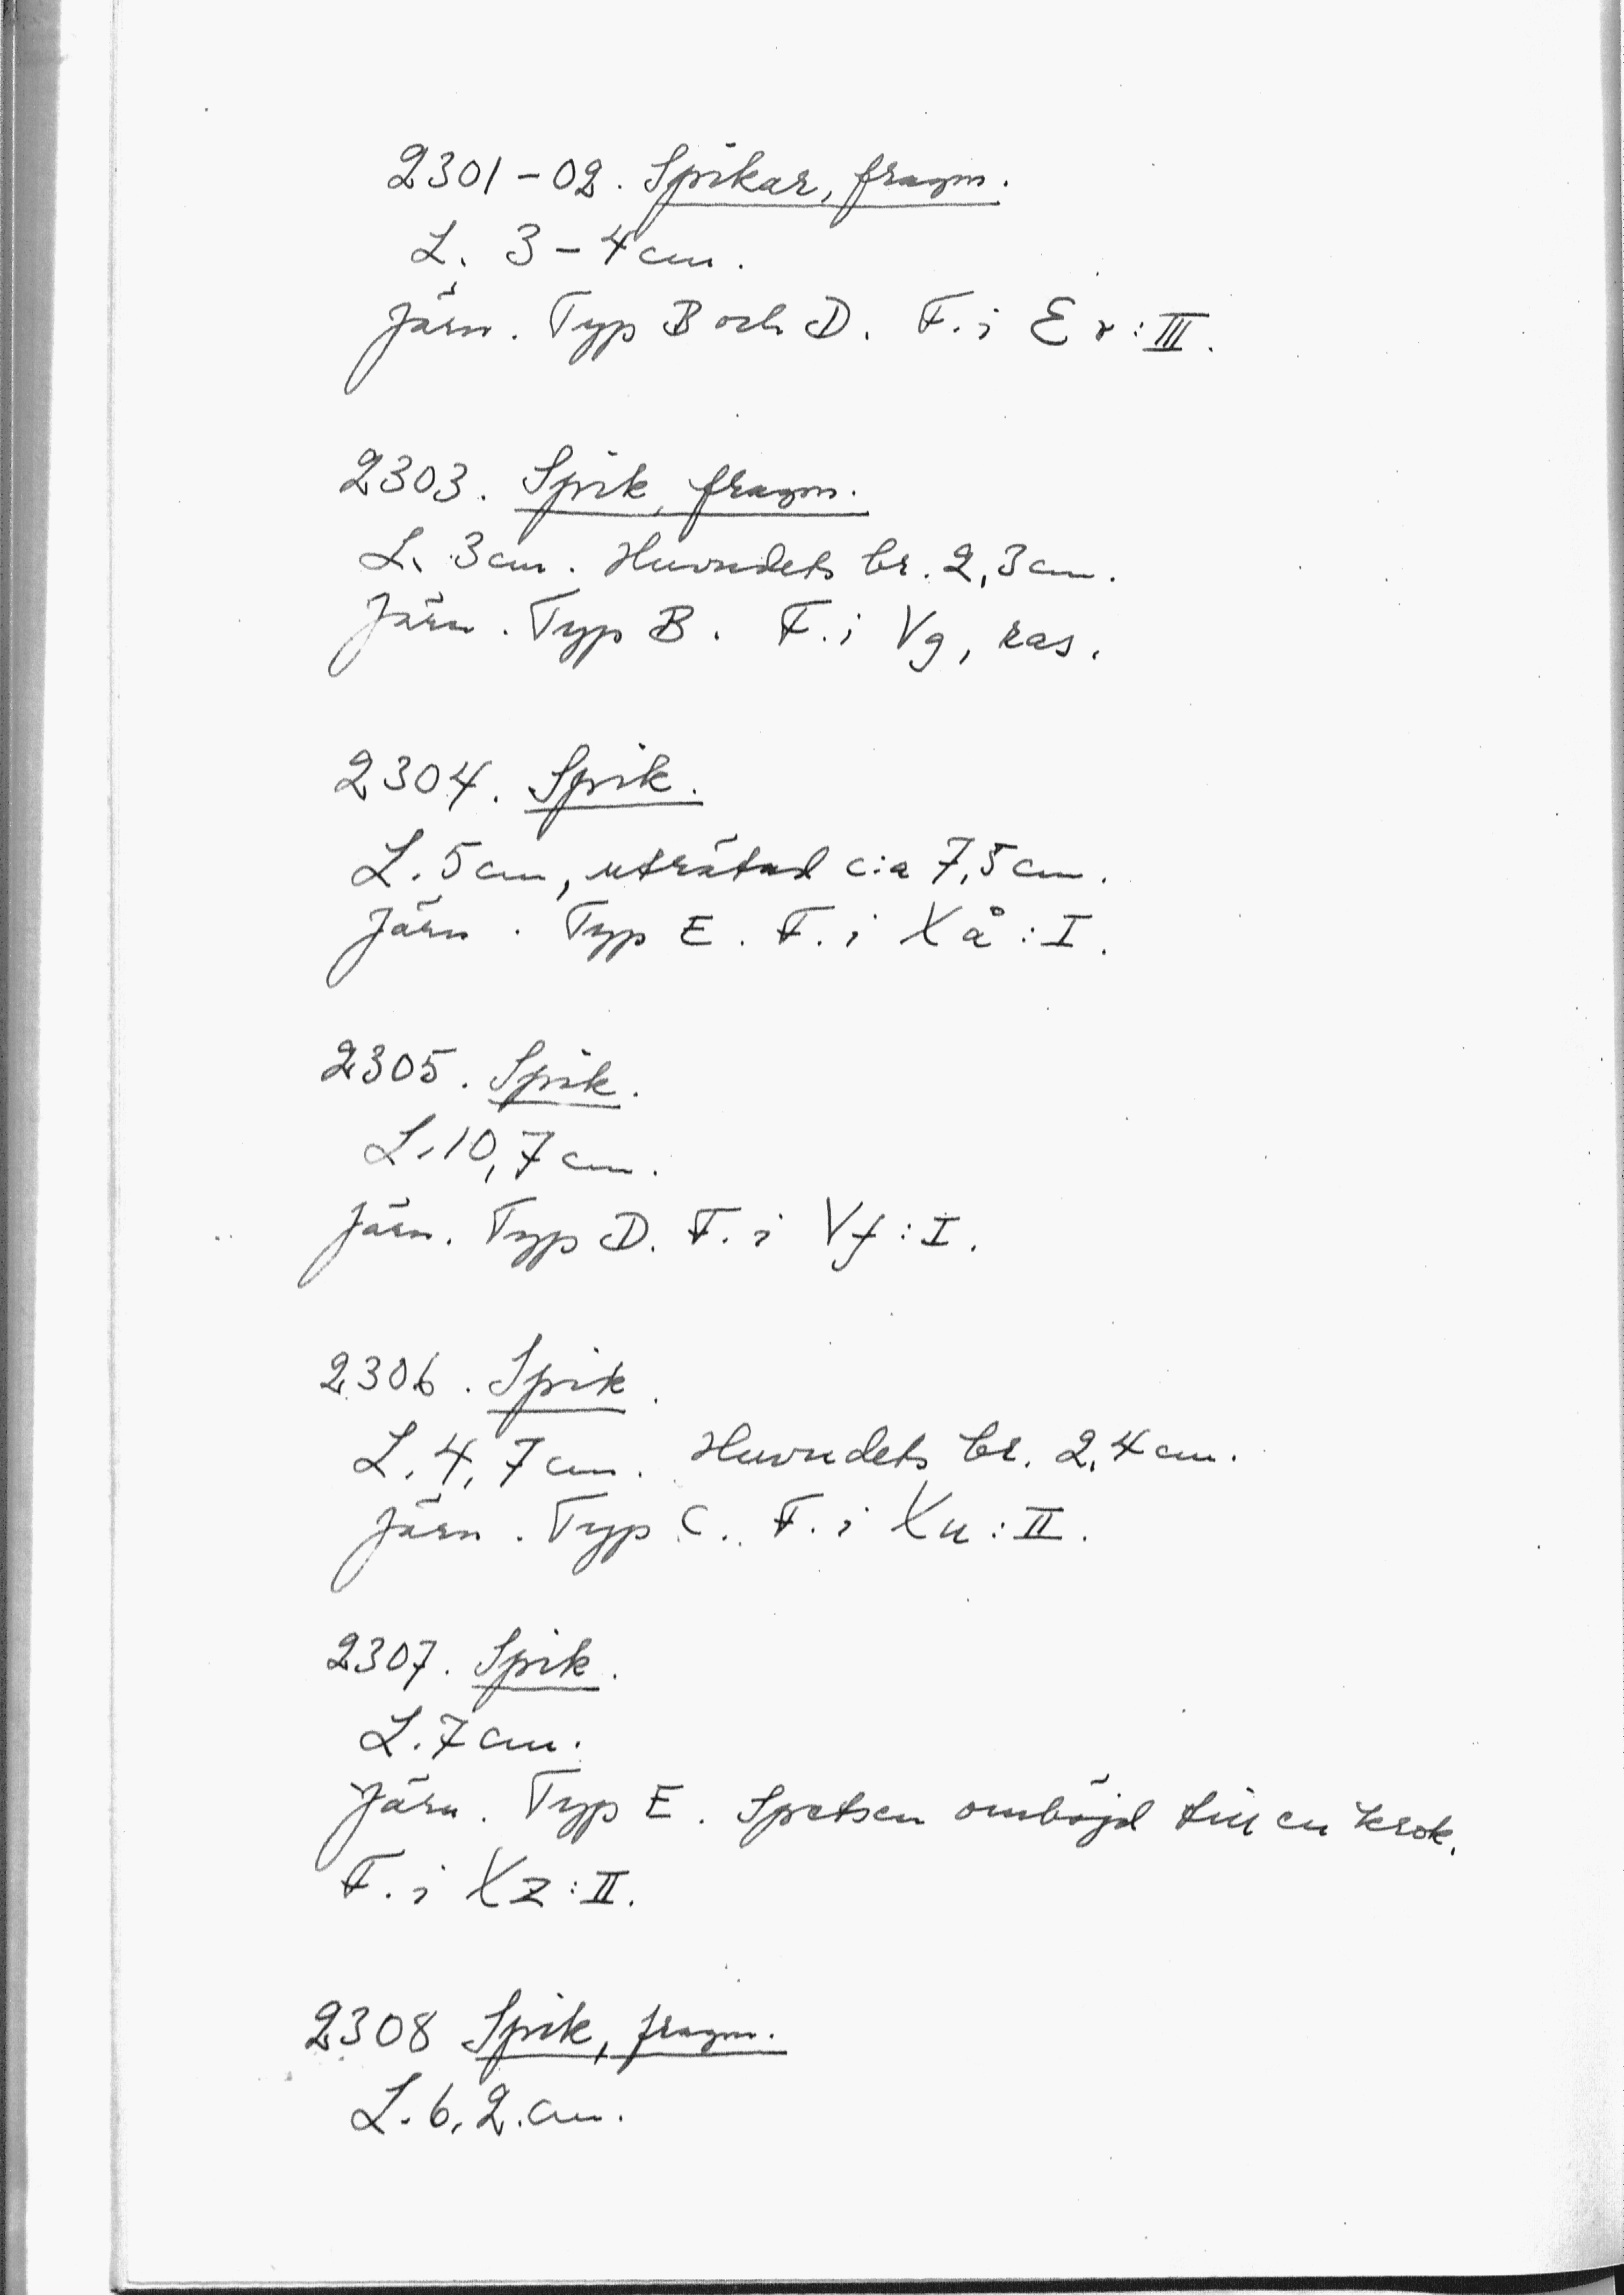 2301-02. Spikar, fragm.
L. 3-4 cm.
Järn. Typ B och D. F. i Er:III.
2303. Spik, fragm.
L. 3 cm. Huvudets br. 2,3 cm.
Järn. Typ B. F. i Vg, ras.
2304. Spik.
L. 5 cm, uträtad c:a 7,5 cm.
Järn. Typ E. F. i Xå:I.
2305. Spik.
L. 10,7 cm.
Järn. Typ D. F. i Vf:I.
2306. Spik.
L. 4,7 cm. Huvudets br. 2,4 cm.
Järn. Typ C. F. i Xu:II.
2307. Spik.
L. 7 cm.
Järn. Typ E. Spetsen omböjd till en krok.
F. i Xz:II.
2308 Spik, fragm.
L. 6,2 cm.